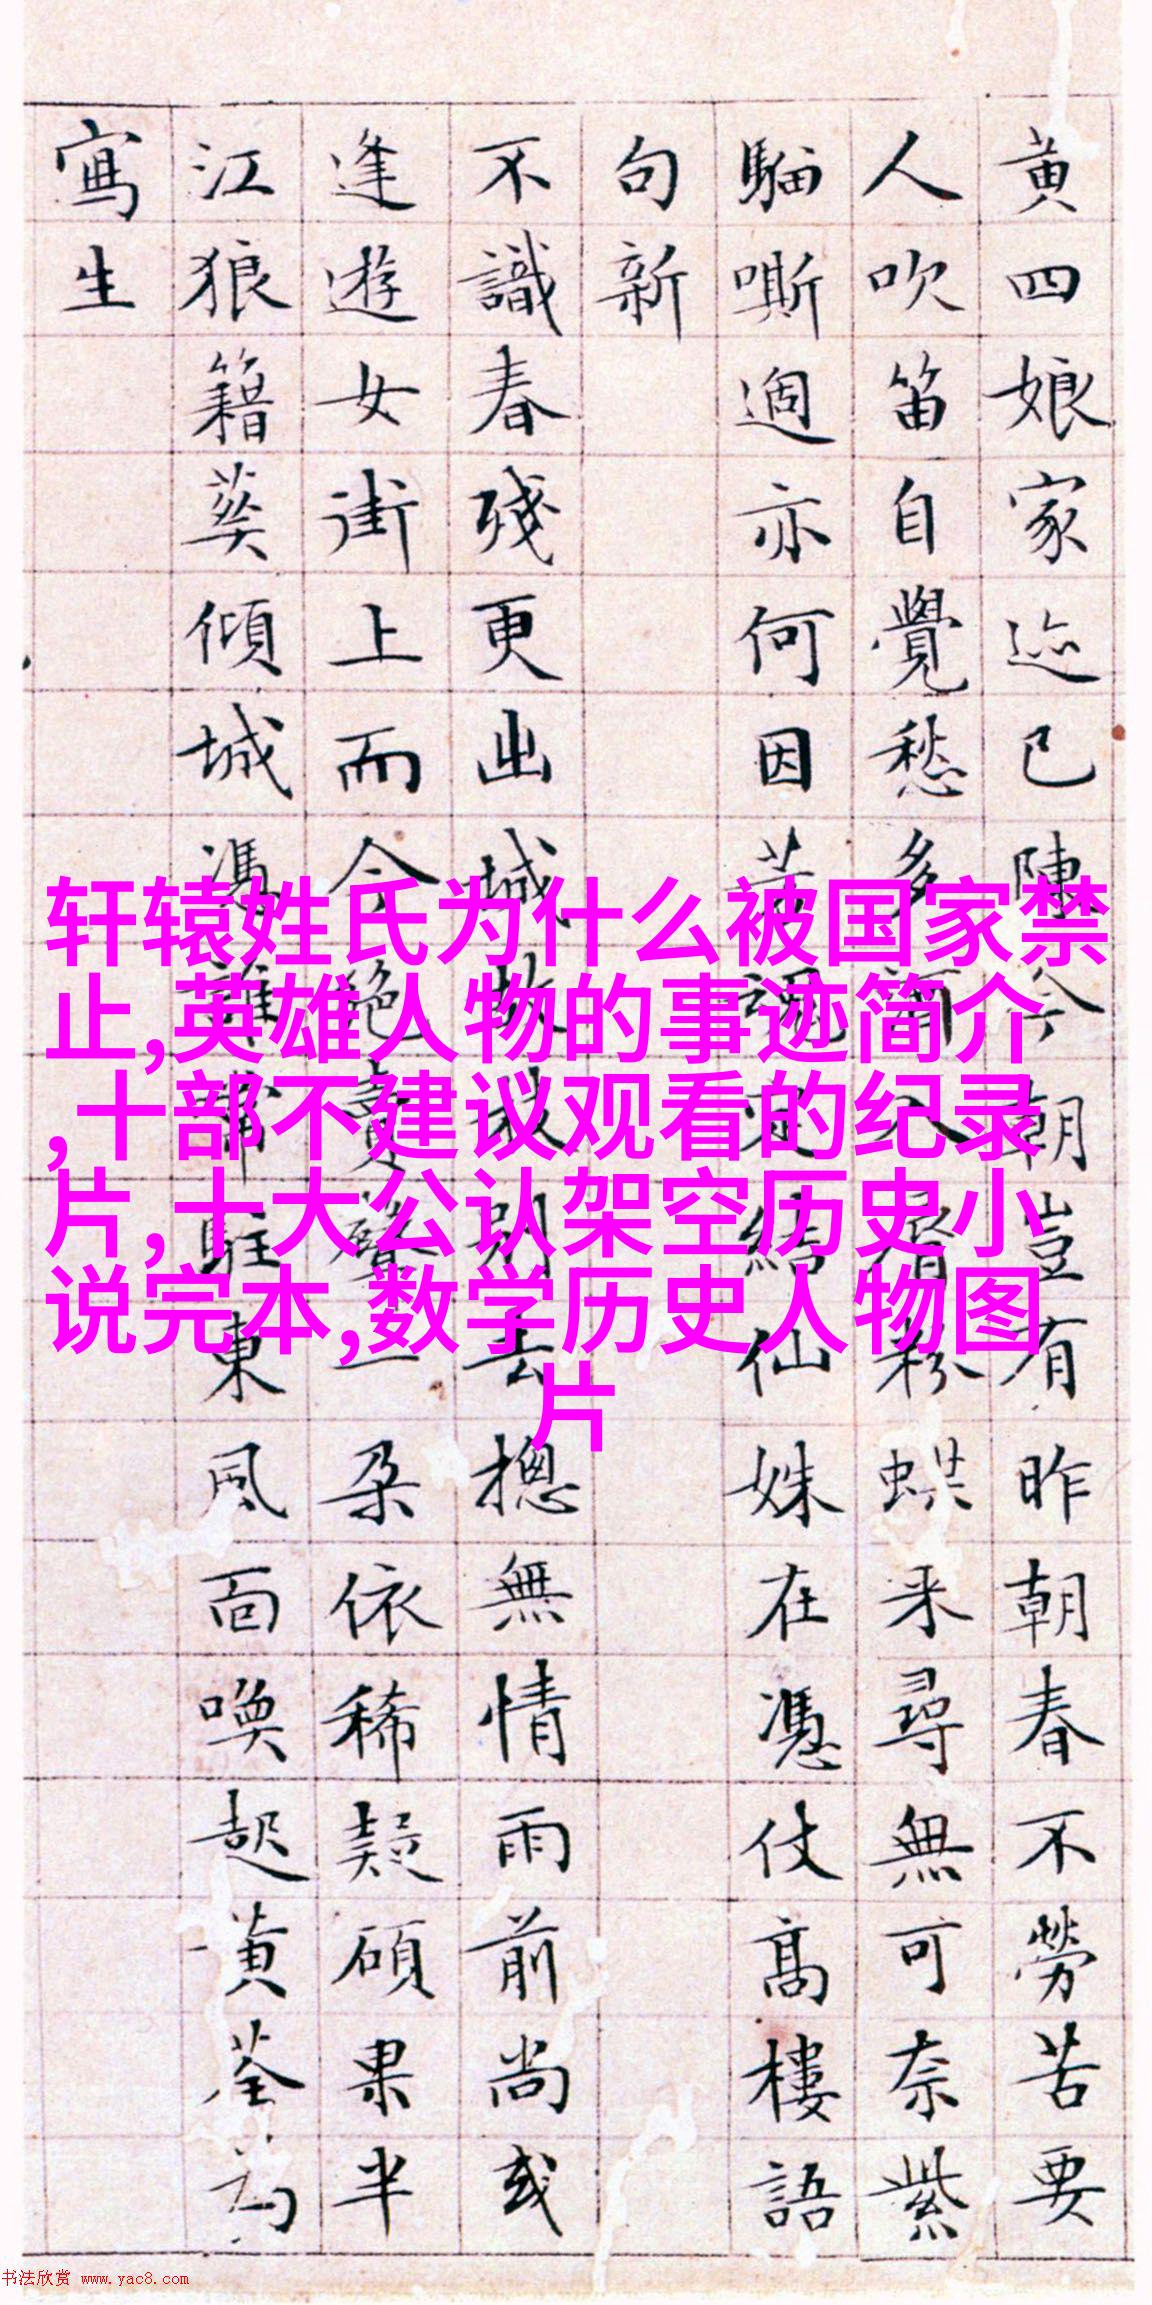 黄四娘家迹已陳今朝豈有昨朝春不勞苦要
人吹笛自覺愁多入眉粉蜨来尋無可奈紫
騮嘶過亦何因若謂定結仙姝在憑仗高樓語
句新
不識春殘更出城故別去摠無情雨前尚或
逢遊女街上而今絶賣聲一朵依稀疑碩果半
江狼籍葵傾城馮誰常駐東風面喚起黄荃為
寫生
轩辕姓氏为什么被国家禁
止,英雄人物的事迹简介
,十部不建议观看的纪录
片,十大公认架空历史小
说完本,数学历史人物图
片
书法欣赏 www.yac8.com